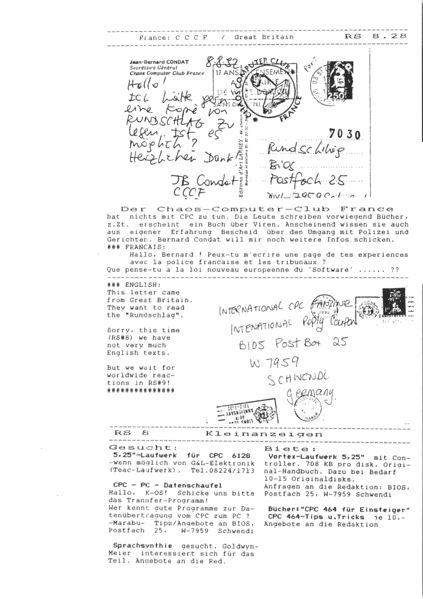 France: C C C F / Great Britain RS 8.28
Jean-Bernard CONDAT
Secrétaire Général
Chaos Computer Club France
8.8.92
COMPUTER CLUB
FRANCE
17 ANS
2,50
Hello!
Ich hätte gern
eine Kopie von
RUNDSCHLAG zu
lesen. Ist es
möglich?
Herzlichen Dank!
JB Condat
CCCF
7030
Rundschlag
BIOS
Postfach 25
Der Chaos-Computer-Club France
hat nichts mit CPC zu tun. Die Leute schreiben vorwiegend Bücher,
z.Zt. erscheint ein Buch über Viren. Anscheinend wissen sie auch
aus eigener Erfahrung Bescheid über den Umgang mit Polizei und
Gerichten. Bernard Condat will mir noch weitere Infos schicken.
### FRANCAIS:
Hallo, Bernard ! Peux-tu m'ecrire une page de tes experiences
avec la police francaise et les tribunaux ?
Que pense-tu à la loi nouveau europeenne du 'Software' ...... ??
### ENGLISH:
This letter came
from Great Britain.
They want to read
the "Rundschlag".
Sorry, this time
(RS#8) we have
not very much
English texts.
But we wait for
worldwide reac-
tions in RS#9!
###############
INTERNATIONAL CPC FANZINE
INTENATIONAL Reply Coupon
BIOS POST BOX 25
W 7959
SCHWENDI
Germany.
RS 8 Kleinanzeigen
Gesucht:
5,25"-Laufwerk für CPC 6128
-wenn möglich von G&L-Elektronik
(Teac-Laufwerk). Tel.08224/1713
CPC - PC - Datenschaufel
Hallo, K-OS! Schicke uns bitte
das Transfer-Programm!
Wer kennt gute Programme zur Da-
tenübertragung vom CPC zum PC ?
-Marabu- Tips/Angebote an BIOS,
Postfach 25, W-7959 Schwendi
Sprachsynthie gesucht. Goldwyn-
Meier interessiert sich für das
Teil. Angebote an die Red.
Biete:
Vortex-Laufwerk 5,25" mit Con-
troller. 708 KB pro disk. Origi-
nal-Handbuch. Dazu bei Bedarf
10-15 Originaldisks.
Anfragen an die Redaktion: BIOS,
Postfach 25, W-7959 Schwendi
Bücher:"CPC 464 für Einsteiger"
CPC 464-Tips u.Tricks je 10.-
Angebote an die Redaktion